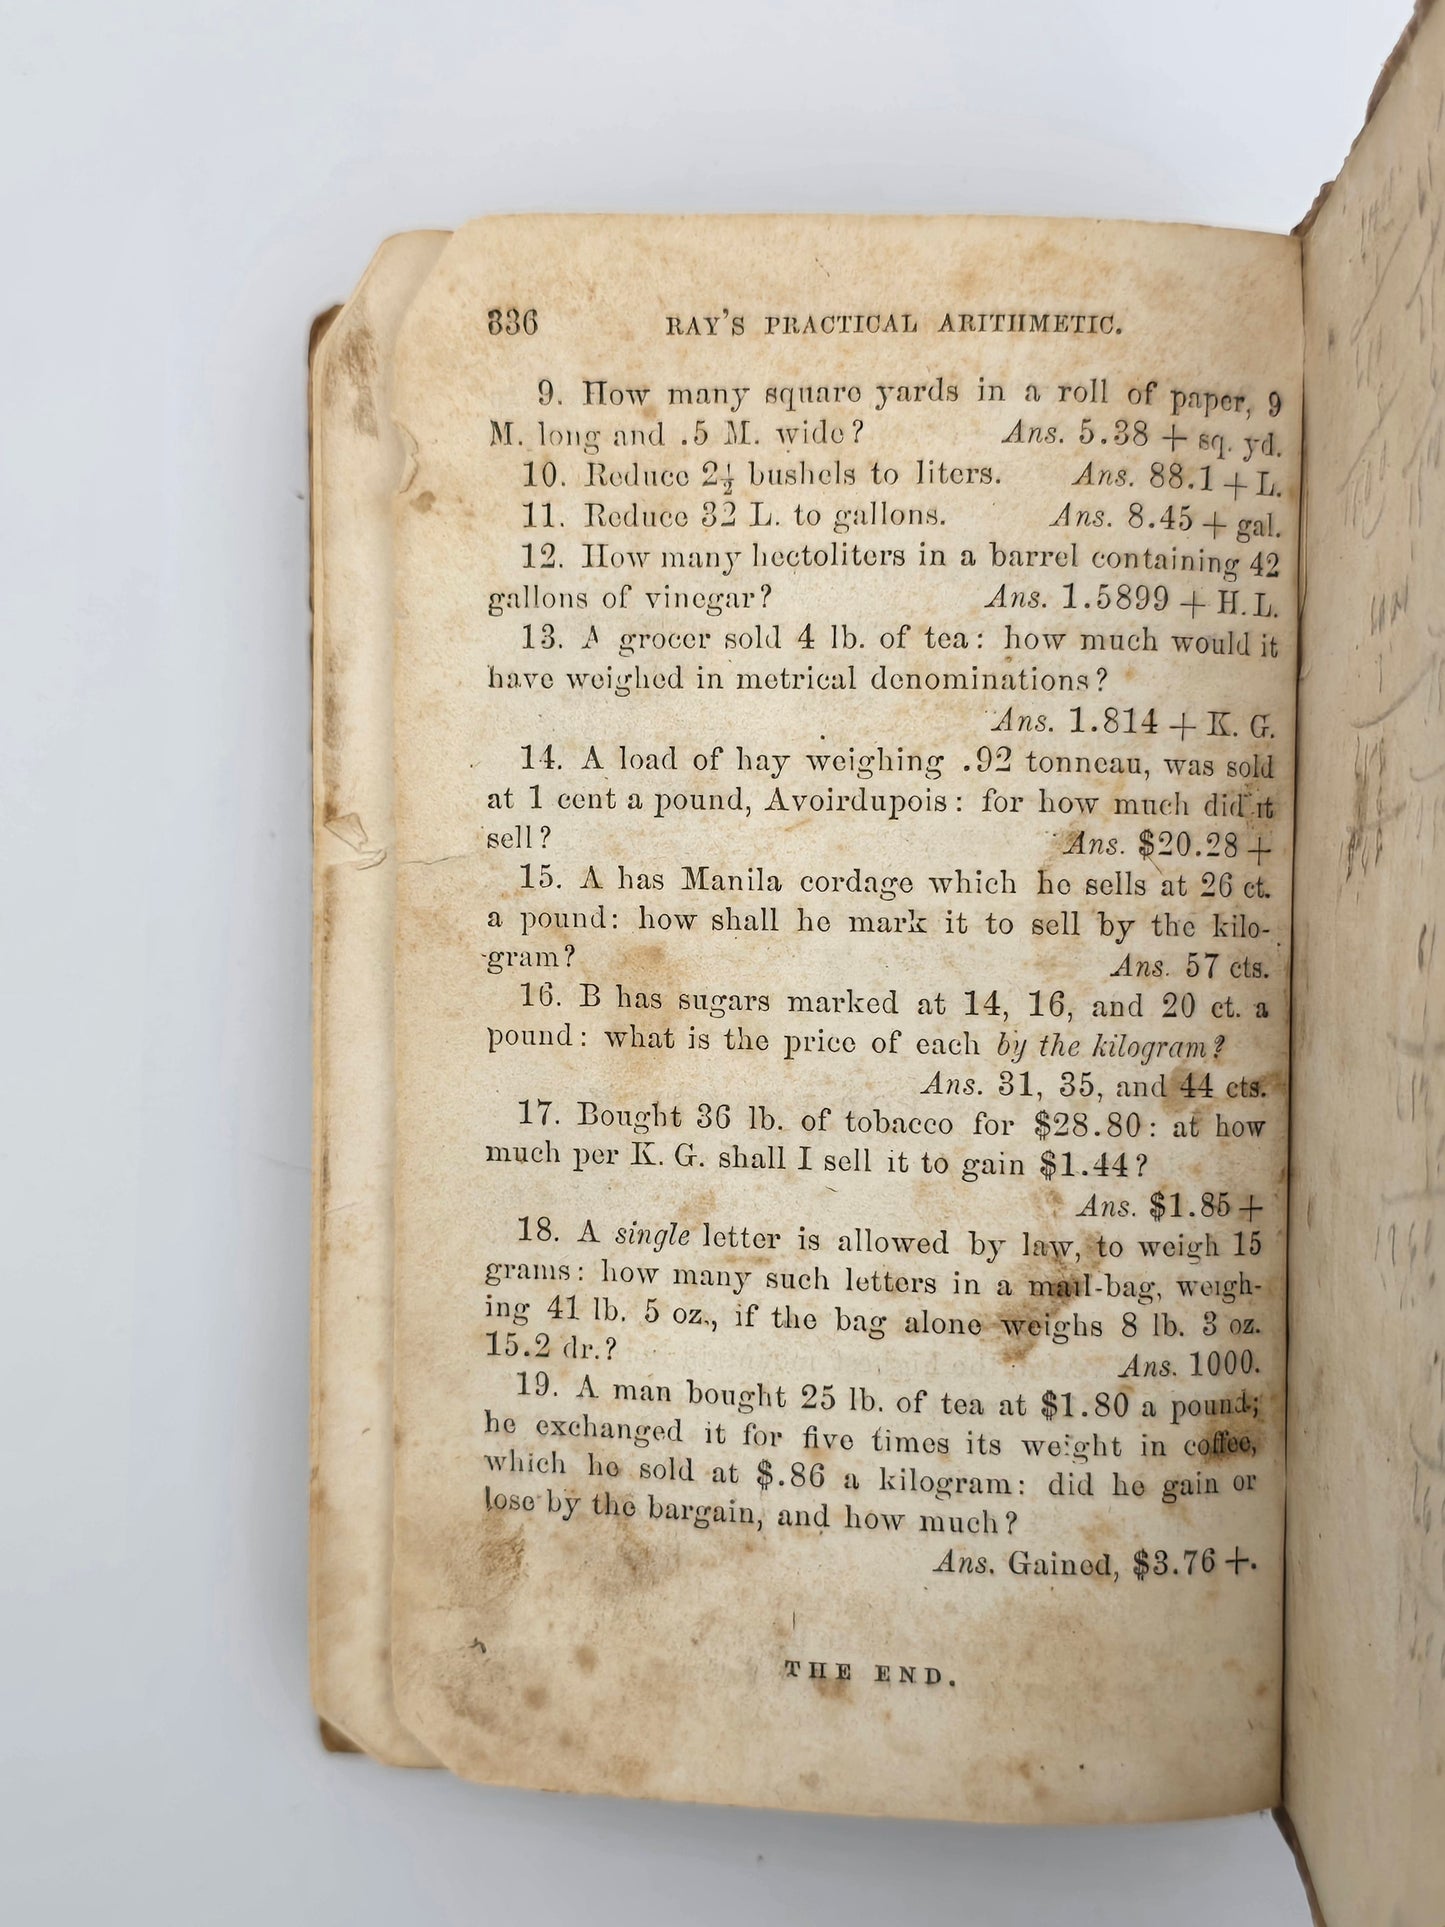 336 RAY'S PRACTICAL ARITHMETIC.
9. How many square yards in a roll of paper, 9
M. long and .5 M. wide? Ans. 5.38 + sq. yd.
10. Reduce 2½ bushels to liters. Ans. 88.1 + L.
11. Reduce 32 L. to gallons. Ans. 8.45 + gal.
12. How many hectoliters in a barrel containing 42
gallons of vinegar? Ans. 1.5899 + H. L.
13. A grocer sold 4 lb. of tea: how much would it
have weighed in metrical denominations?
Ans. 1.814 + K. G.
14. A load of hay weighing .92 tonneau, was sold
at 1 cent a pound, Avoirdupois: for how much did it
sell? Ans. $20.28 +
15. A has Manila cordage which he sells at 26 ct.
a pound: how shall he mark it to sell by the kilo-
gram? Ans. 57 cts.
16. B has sugars marked at 14, 16, and 20 ct. a
pound: what is the price of each by the kilogram?
Ans. 31, 35, and 44 cts.
17. Bought 36 lb. of tobacco for $28.80: at how
much per K. G. shall I sell it to gain $1.44?
Ans. $1.85 +
18. A single letter is allowed by law, to weigh 15
grams: how many such letters in a mail-bag, weigh-
ing 41 lb. 5 oz., if the bag alone weighs 8 lb. 3 oz.
15.2 dr.? Ans. 1000.
19. A man bought 25 lb. of tea at $1.80 a pound;
he exchanged it for five times its weight in coffee,
which he sold at $.86 a kilogram: did he gain or
lose by the bargain, and how much?
Ans. Gained, $3.76 +.
THE END.